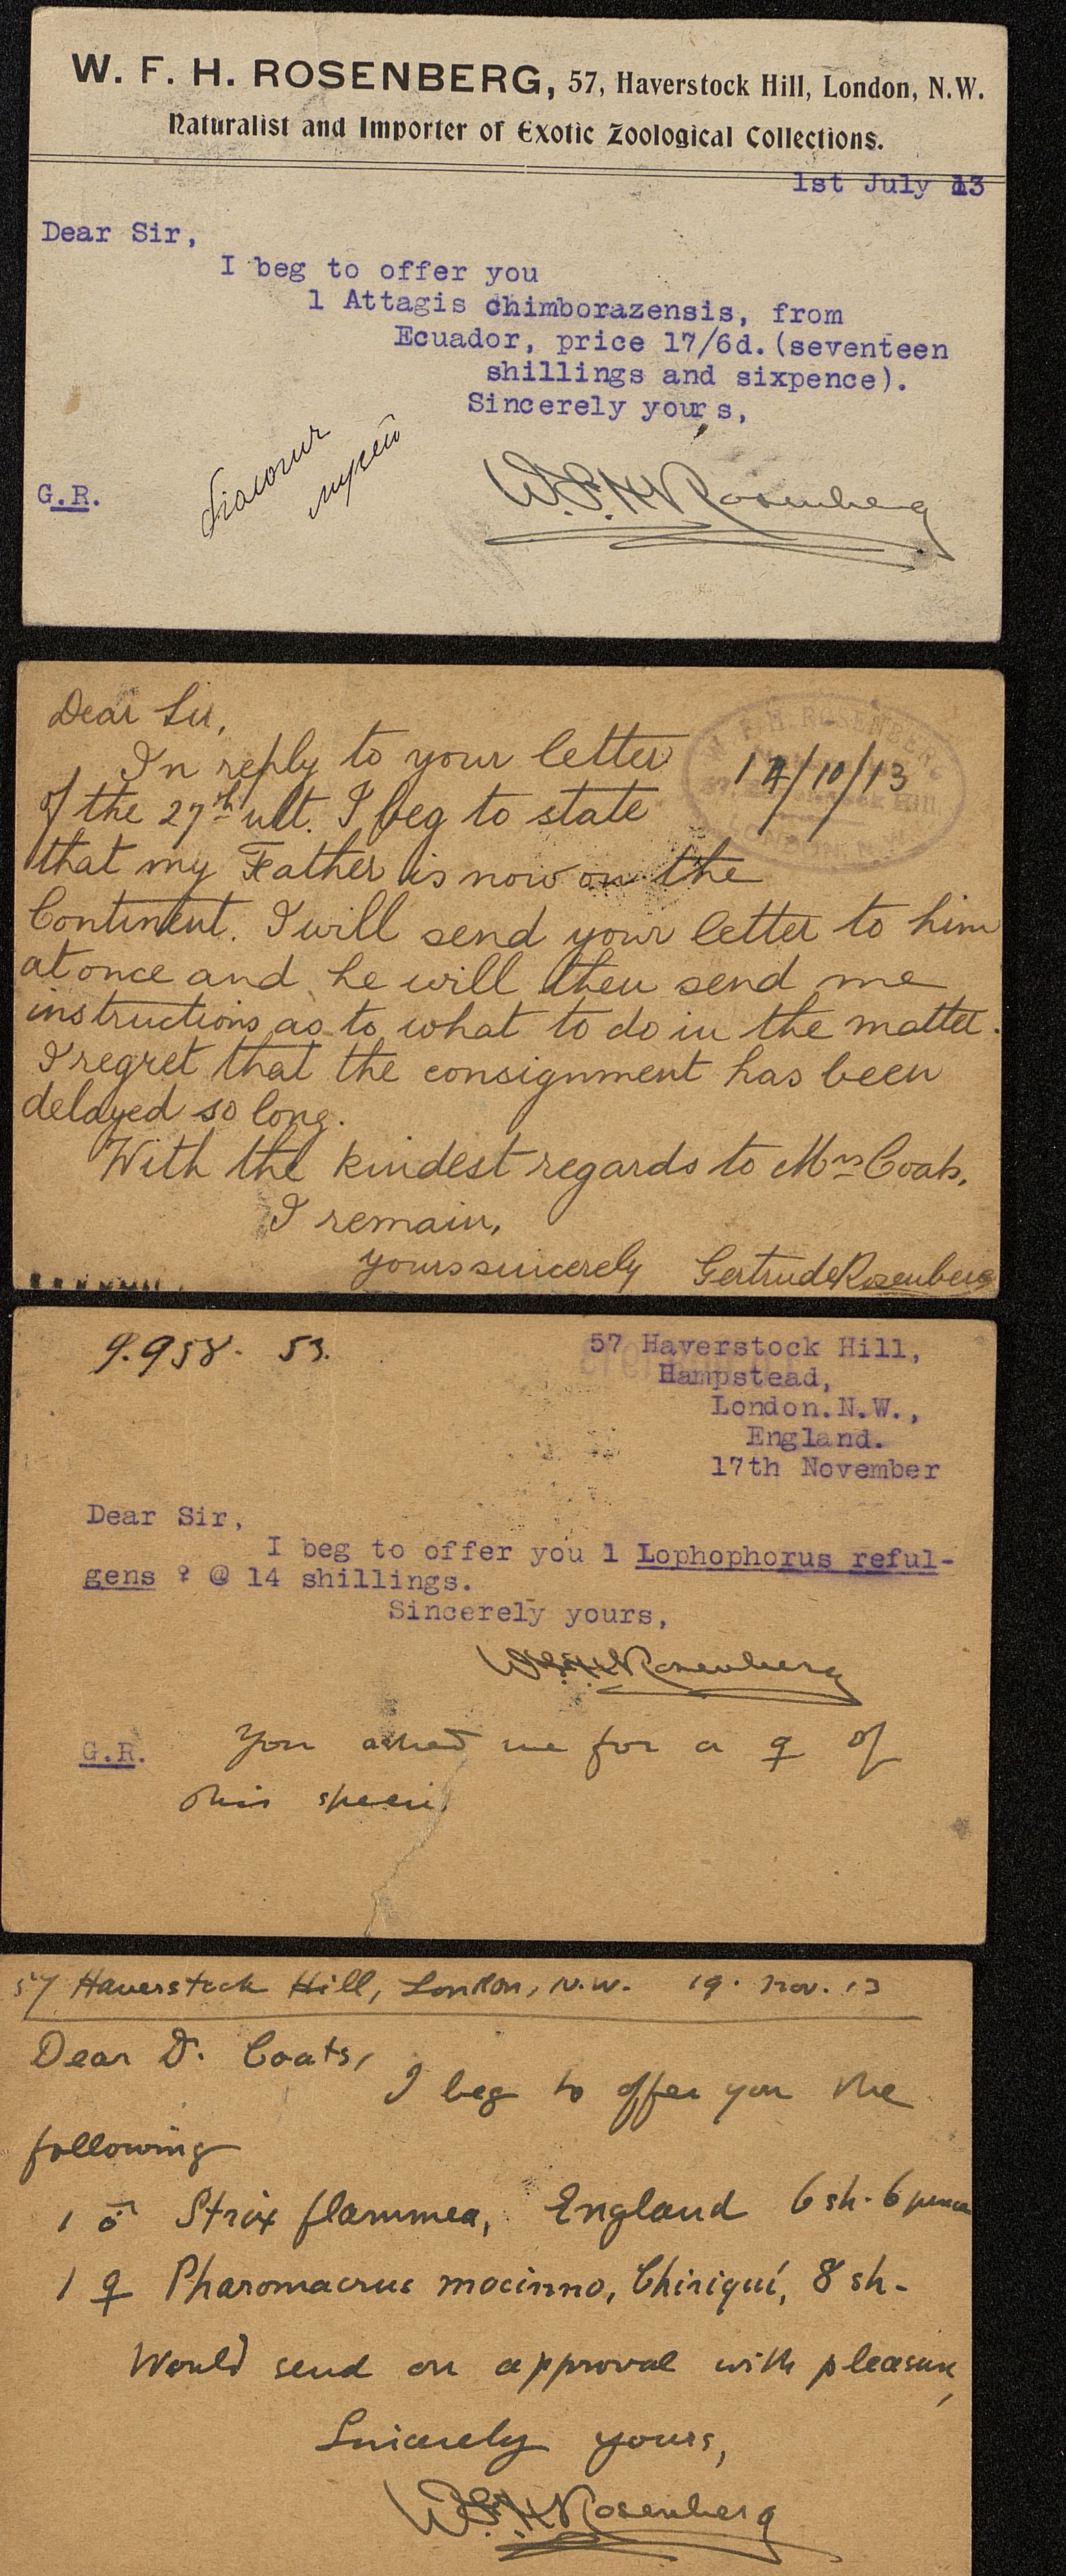 W. F. H. ROSENBERG, 57, Haverstock Hill, London, N.W.
Naturalist and Importer of Exotic Zoological Collections.
1st July 13
Dear Sir,
I beg to offer you
1 Attagis chimborazensis, from
Ecuador, price 17/6d. (seventeen
shillings and sixpence).
Sincerely yours,
G.R.
W.F.H. Rosenberg
Dear Sir,
In reply to your letter
14/10/13
W. F. H. ROSENBERG
LONDON, N.W.
of the 27th ult. I beg to state
that my Father is now on the
Continent. I will send your letter to him
at once and he will then send me
instructions as to what to do in the matter.
I regret that the consignment has been
delayed so long.
With the kindest regards to Mrs Coats,
I remain,
yours sincerely Gertrude Rosenberg
9.958. 53.
57 Haverstock Hill,
Hampstead,
London.N.W.,
England.
17th November
Dear Sir,
I beg to offer you 1 Lophophorus reful-
gens ♀ @ 14 shillings.
Sincerely yours,
W.F.H. Rosenberg
G.R. You asked me for a ♀ of
this species
57 Haverstock Hill, London, N.W. 19. Nov. 13
Dear D. Coats,
I beg to offer you the
following
1 ♂ Strix flammea, England 6 sh. 6 pence
1 ♀ Pharomacrus mocinno, Chiriquí, 8 sh.
Would send on approval with pleasure,
Sincerely yours,
W.F.H. Rosenberg